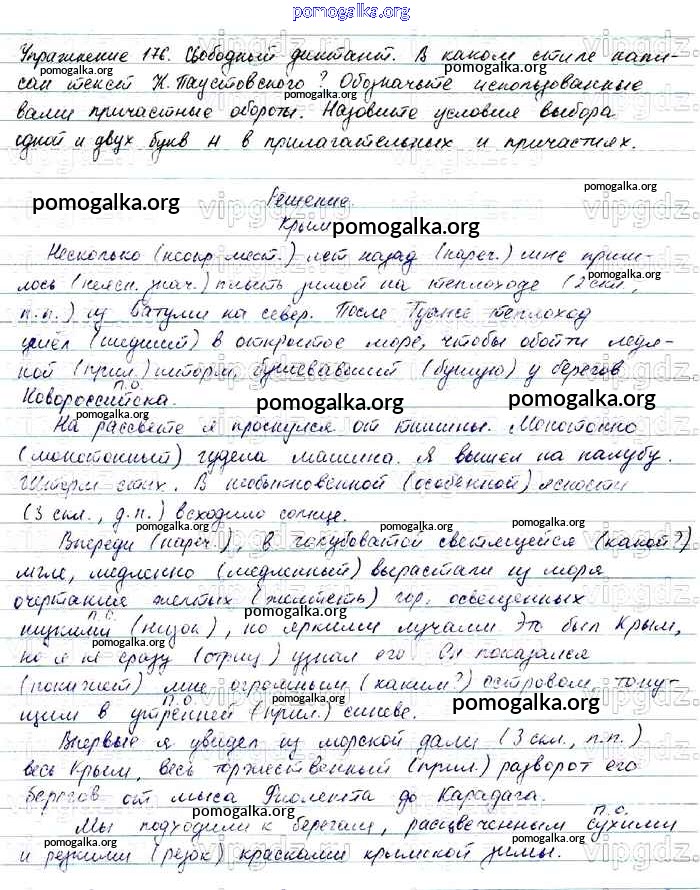 pomogalka.org
Упражнение 176. Свободный диктант. В каком стиле напи-
сан текст К. Паустовского? Обозначьте использованные
вами причастные обороты. Назовите условия выбора
одной и двух букв н в прилагательных и причастиях.
Решение.
Крым
Несколько (неопр. мест.) лет назад (нареч.) мне приш-
лось (неясн. знач.) плыть зимой на теплоходе (2 скл.,
п.п.) из Батуми на север. После Туапсе теплоход
ушёл (шедший) в открытое море, чтобы обойти ледя-
ной (прил.) шторм, бушевавший (бушую) у берегов
п.о.
Новороссийска.
На рассвете я проснулся от тишины. Монотонно
(монотонный) гудела машина. Я вышел на палубу.
Шторм стих. В необыкновенной (особенной) ясности
(3 скл., д.п.) всходило солнце.
Впереди (нареч.), в голубоватой светящейся (какой?)
мгле, медленно (медленный) вырастали из моря
очертания желтых (желтеть) гор, освещенных
п.о.
низкими (низок), но яркими лучами Это был Крым,
но я не сразу (отриц) узнал его Он показался
(покажет) мне огромным (каким?) островом тону-
п.о.
щим в утренней (прил.) синеве.
Впервые я увидел из морской дали (3 скл., п.п.)
весь Крым, весь торжественный (прил.) разворот его
берегов от мыса Фиолента до Карадага.
п.о.
Мы подходили к берегам, расцвеченным сухими
и резкими (резок) красками крымской зимы.